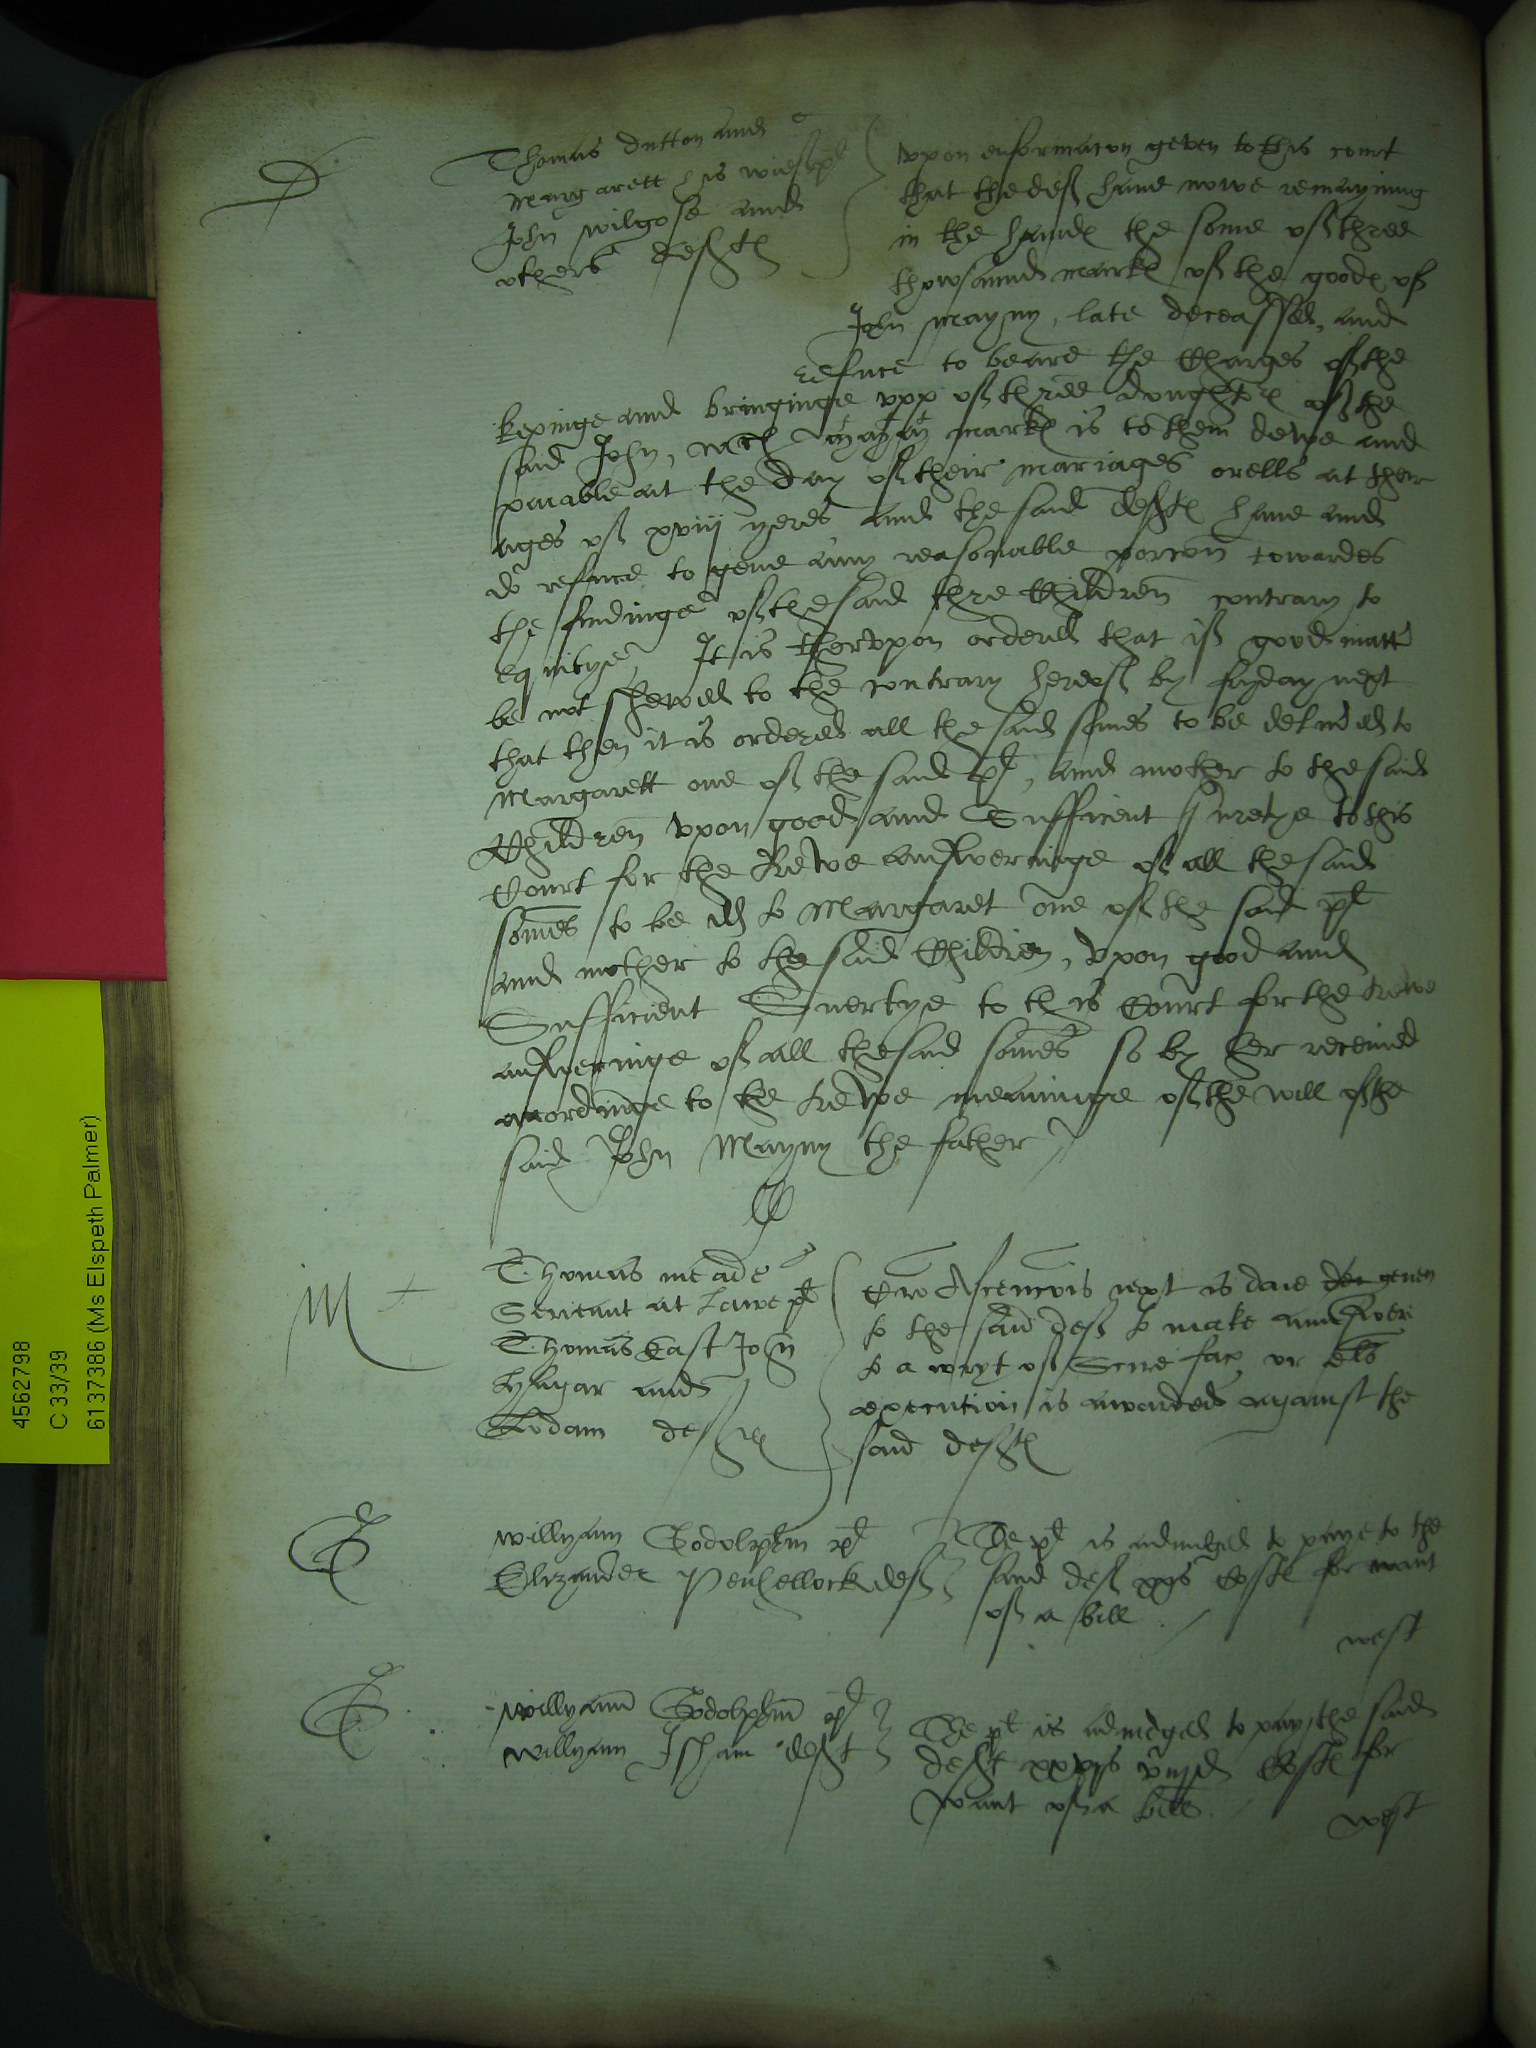 D
Thomas dutton and
Margarett his wief plt
John wilgose and
others deftes
vpon enformacon geven to this court
that the def have nowe remayning
in the handes the some of three
thowsannd markes of the goodes of
John Mayny, late deceassed, and
refuce to beare the Charges of the
kepinge and bringinge vpp of three doughters of the
said John, wch markes is to them dewe and
paiable at the day of their mariages orells at ther
ages of xviij yeres and the said deftes have and
do refuce to geve any reasonable porcon towardes
the findinge of the said thre Children contrary to
equitye, It is thervpon ordered that if good matter
be not shewed to the contrary hereof by fryday next
that then it is ordered all the said somes to be delivered to
Margarett one of the said plt, and mother to the said
Children vpon good and Sufficient suretye to this
Court for the trewe answeringe of all the said
somes to be dd to Margaret one of the said plt
and mother to the said Children, vpon good and
Sufficient Suertye to this Court for the trewe
answeringe of all the said somes so by her received
acordinge to the trewe meaninge of the will of the
said John Mayny the father
M
Thomas meade
Serieant at Lawe plt
Thomas East John
and
deftes
Cro Ascencois next is daie geven
to the said def to make annswer
to a wryt of Scire fac or els
execution is awarded against the
said deftes
G
willyam Godolphin plt
Elizander Penhellock def
The plt is adiudged to paye to the
said def xxs Costes for want
of a bill.
west
G
willyam Godolphin plt
willyam Isham deft
The plt is adiudged to pay the said
deft xxvjs viijd Costes for
want of a bill.
west
4562798
C 33/39
6137386 (Ms Elspeth Palmer)